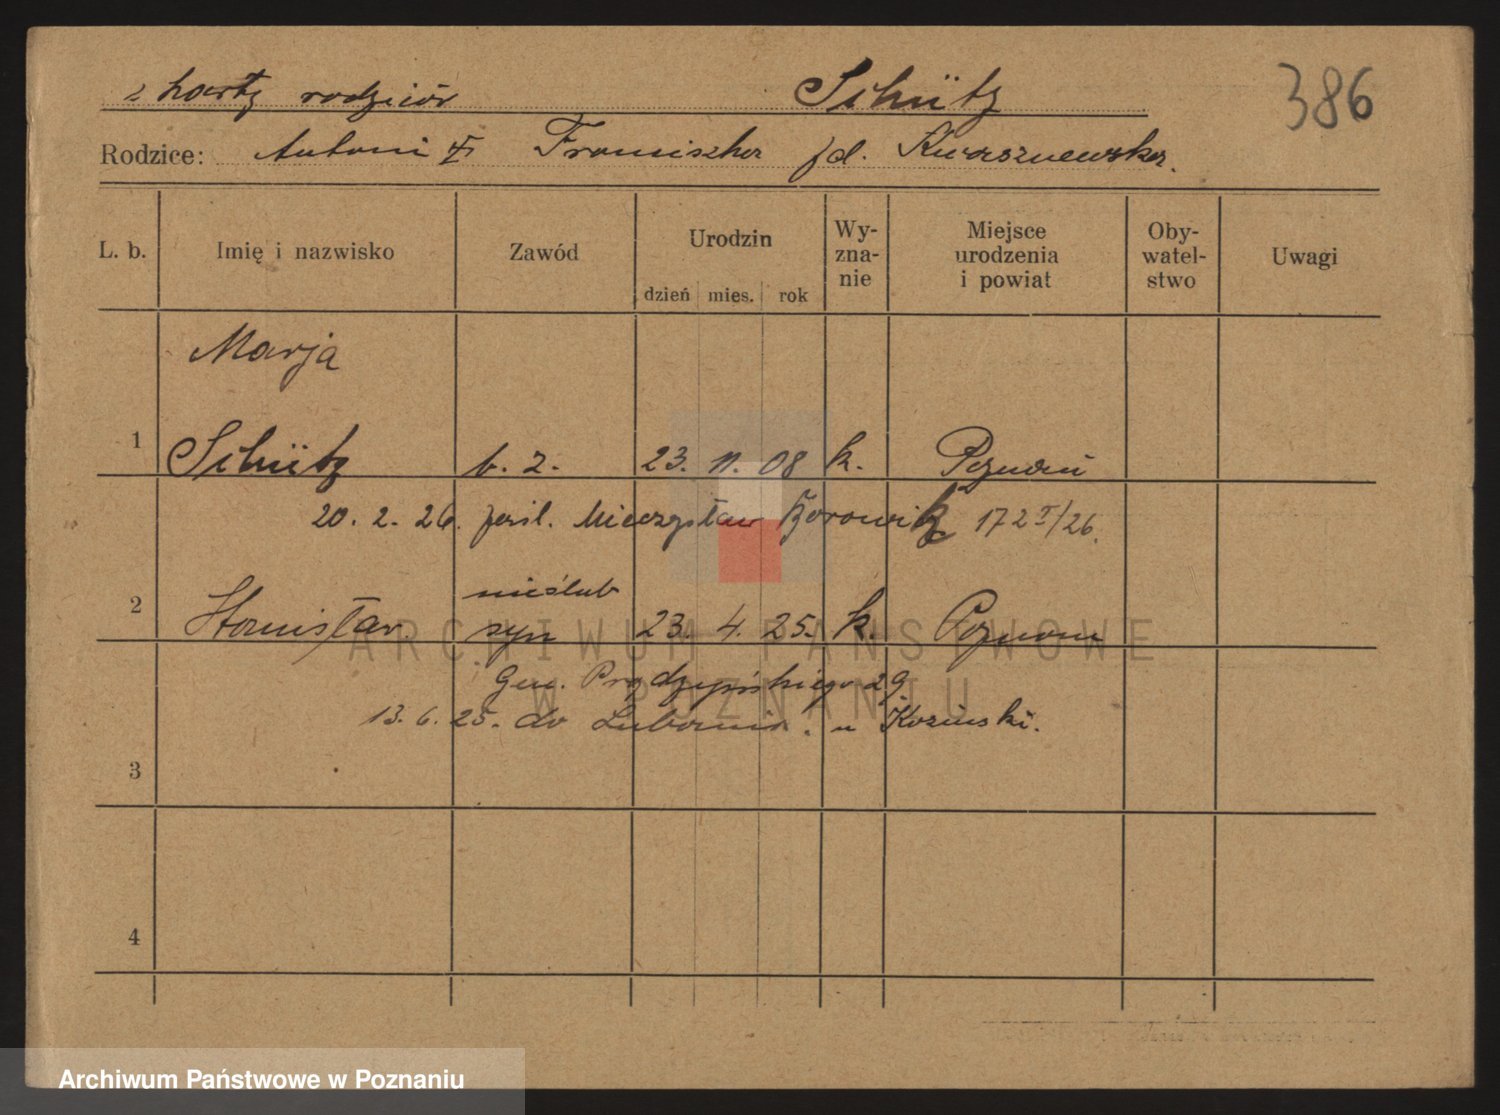 z karty rodziców Schütz 386
Rodzice: Antoni Franciszka zd. Kwaszniewska.
L. b. Imię i nazwisko Zawód Urodzin dzień mies. rok Wy- zna- nie Miejsce urodzenia i powiat Oby- watel- stwo Uwagi
Marja
1 Schütz b. z. 23. 11. 08 k. Poznań
20. 2. 26. Mieczysław 172 I/26.
nieślub
2 Stanisław syn 23. 4. 25. k. Poznań
Gen. Prądzyńskiego 29
13. 6. 25. do Lubonia. u Kozinski.
3
4
ARCHIWUM PAŃSTWOWE
W POZNANIU
Archiwum Państwowe w Poznaniu